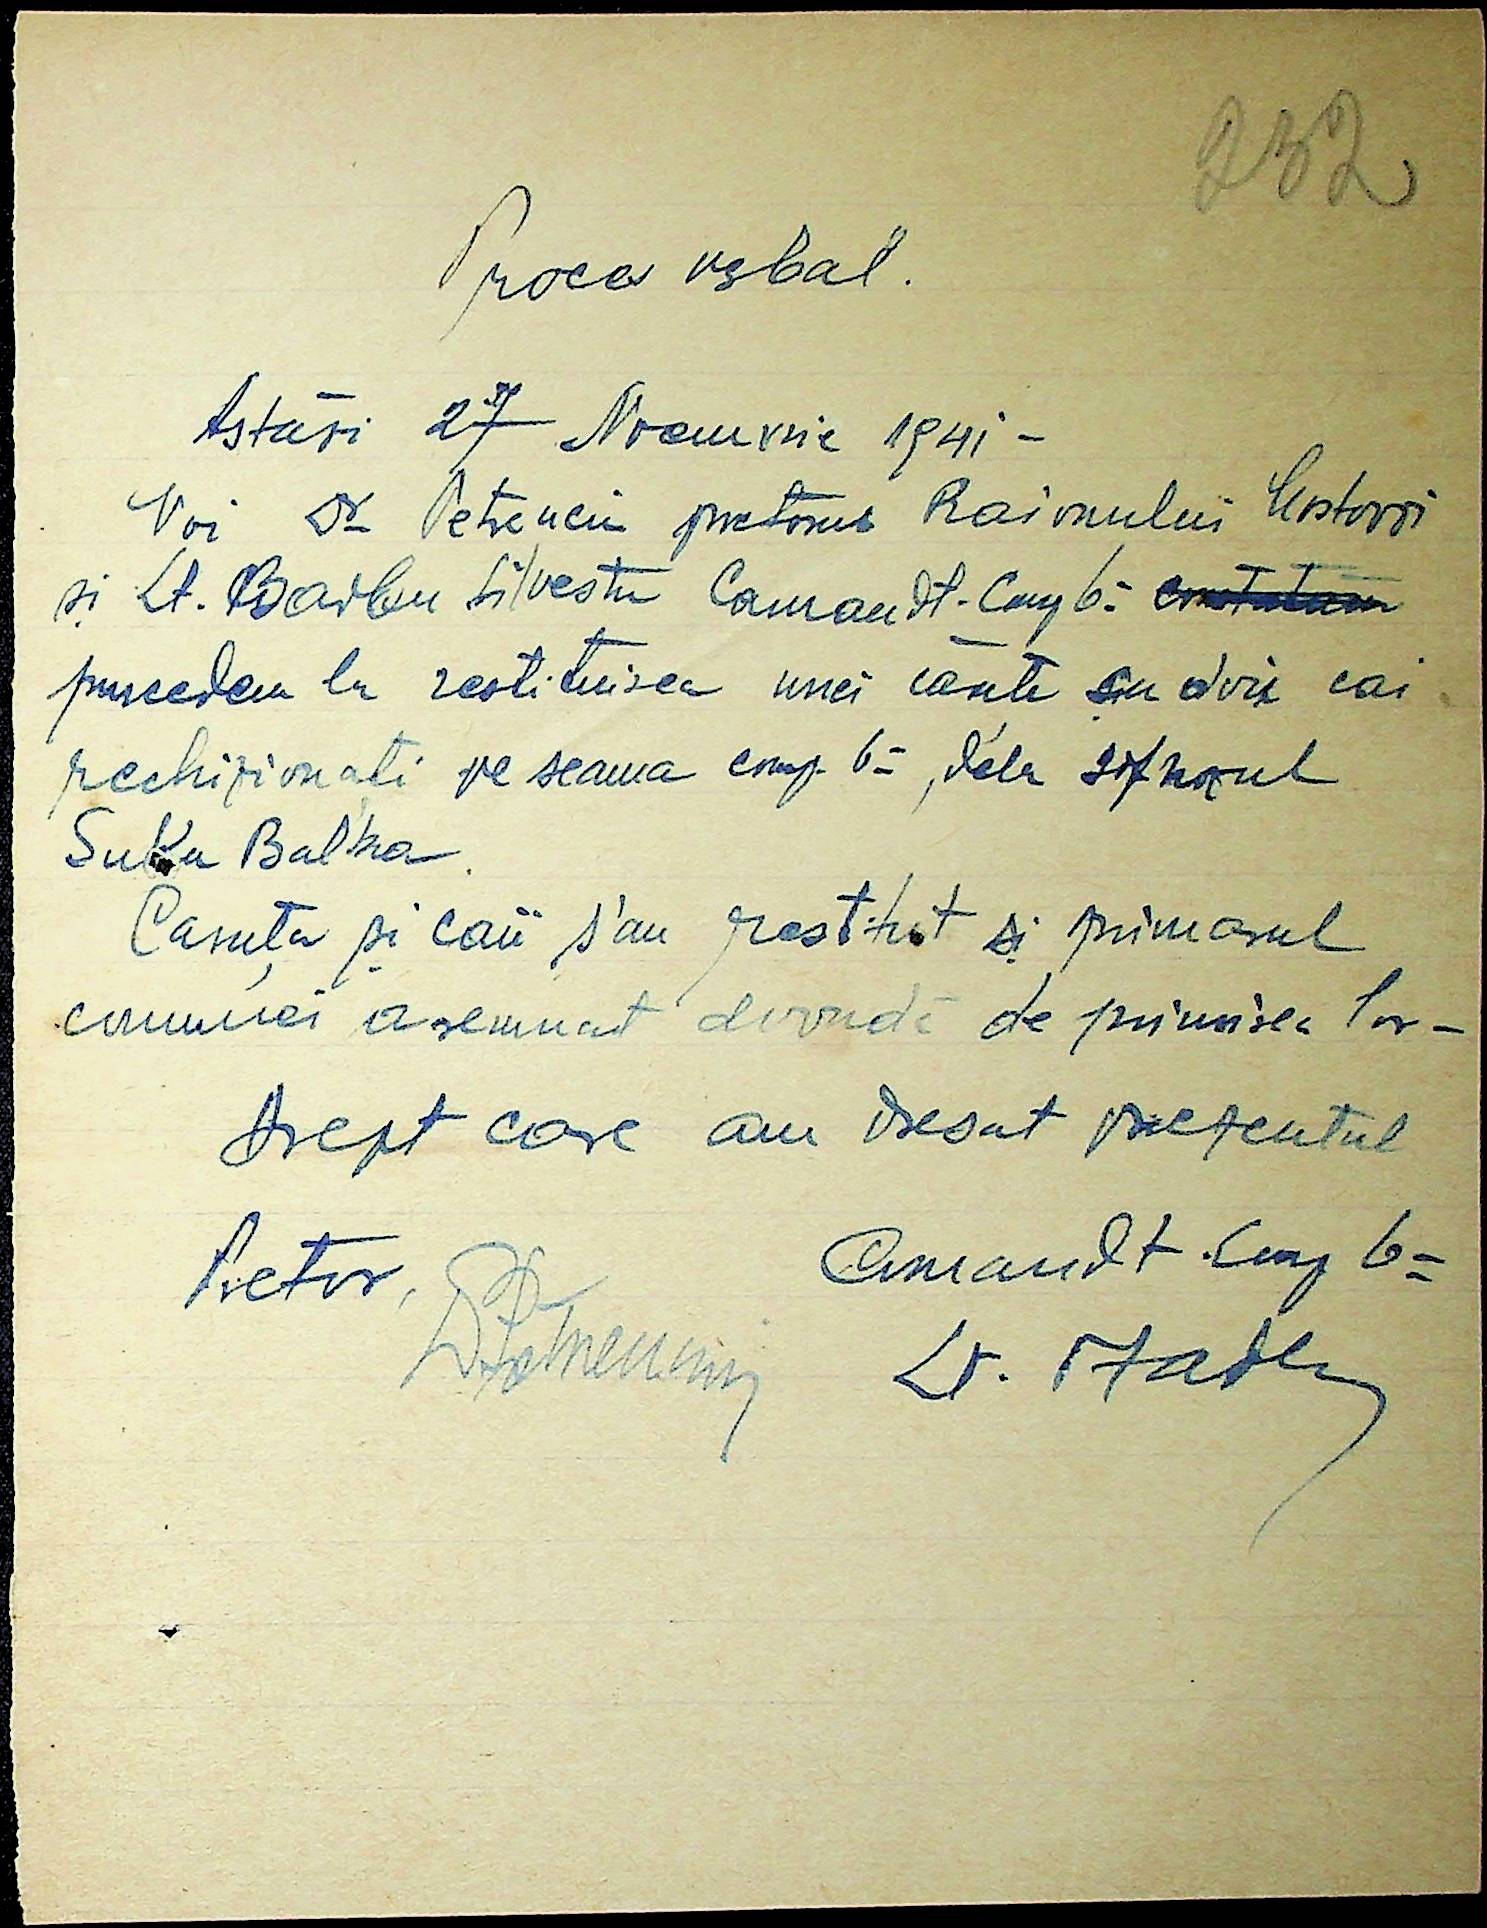 232
Proces verbal.
Astăzi 27 Noemvrie 1941 -
Noi Dr Petrenciu pretorul Raionului Mostovoi
și Lt. Barbu Silvestru Comandt. Comp 6- constatam
procedem la restituirea unei cărute cu doi cai
rechiziționati pe seama comp. 6-, dela sofhozul
Suka Balka.
Caruța și caii s'au restituit și primarul
comunei a semnat dovadă de primirea lor -
Drept care am dresat prezentul
Pretor,
Comandt. Comp 6-
Lt.